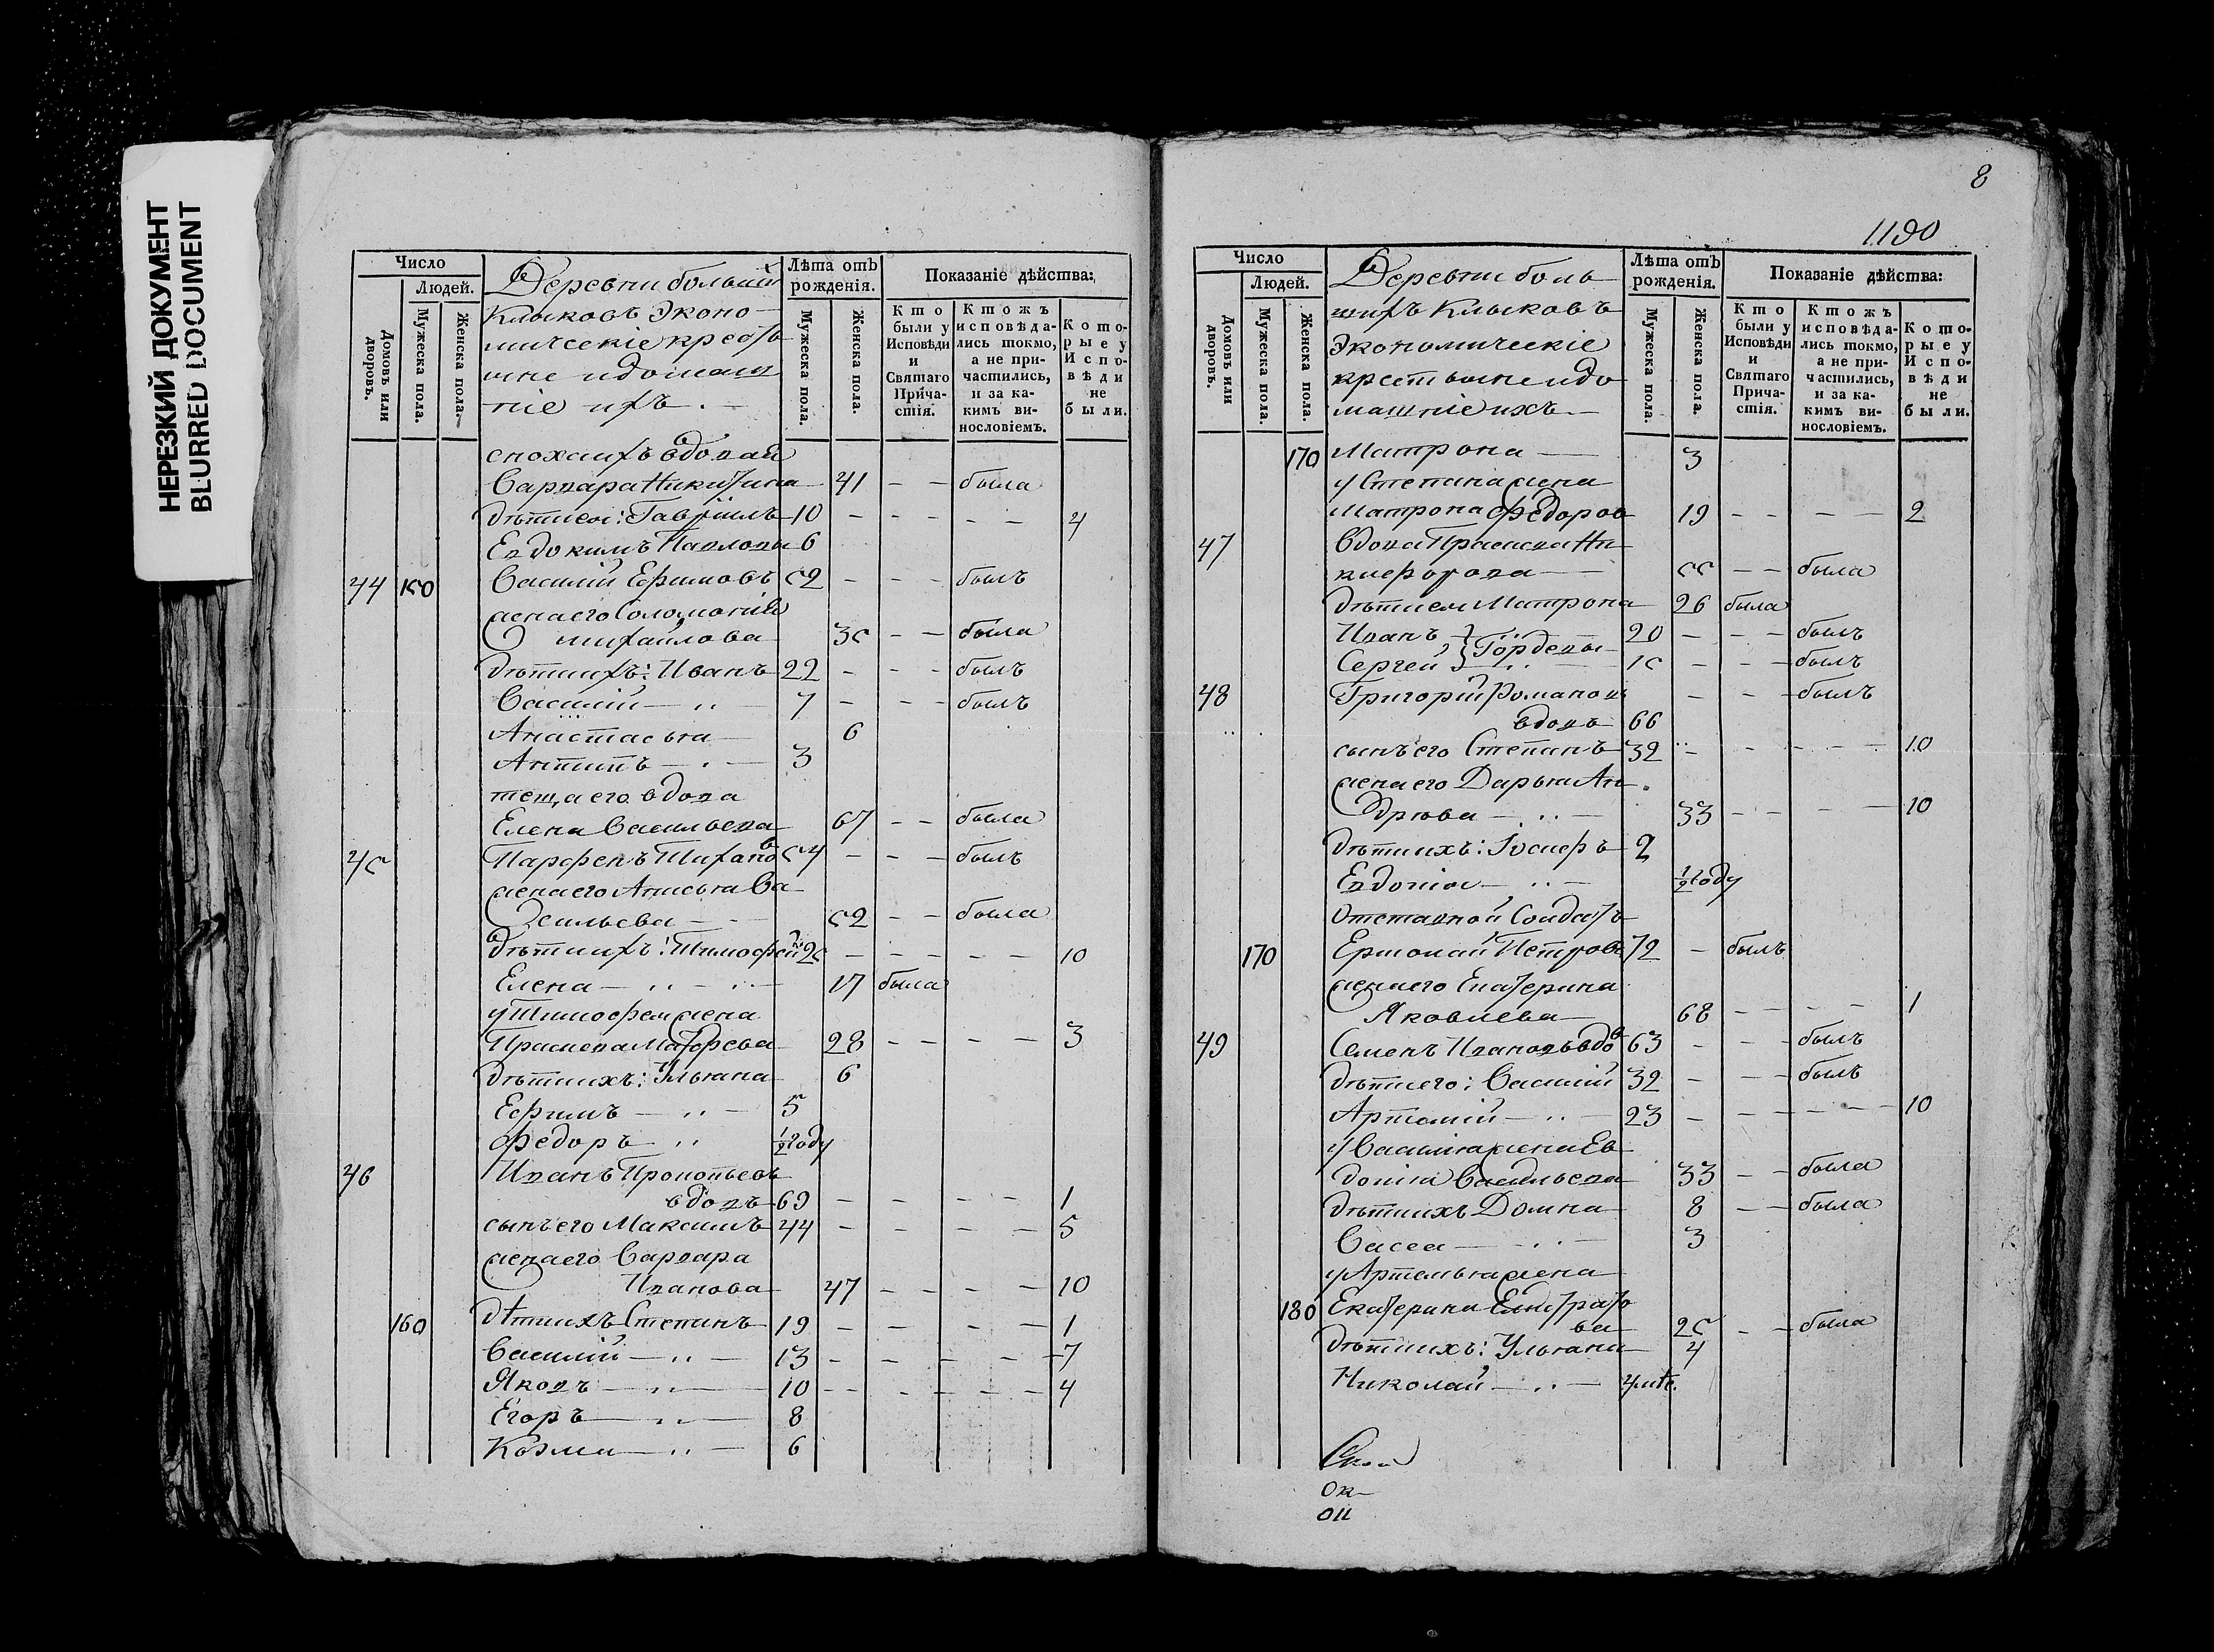 НЕРЕЗКИЙ ДОКУМЕНТ
BLURRED DOCUMENT
Число
Людей.
Домовъ или дворовъ.
Мужеска пола.
Женска пола.
Деревни большихъ
Клыковъ Эконо-
мическіе крестья
не и домаш
ніе ихъ. —
Лѣта отъ рожденія.
Мужеска пола.
Женска пола.
Показаніе дѣйства:
Кто были у Исповѣди и Святаго Причастія.
Ктожъ исповѣдались токмо, а не причастились, и за какимъ винословіемъ.
Которые у Исповѣди не были.
снохаихъ вдовая
Варвара Никитина 41 — — была
дѣтиея: Гавріилъ 10 — — — — — 4
Евдокимъ Павловы 6
44 150 Василій Ефимовъ 52 — — — былъ
женаего Соломонія
Михайлова 35 — — была
дѣтиихъ: Иванъ 22 — — — былъ
Василій — „ — 7 — — — былъ
Анастасья — 6
Антипъ — „ — 3
теща его вдова
Елена Васильева 67 — — была
45 Парфенъ Тихановъ 54 — — — былъ
женаего Анисья Ва-
сильева — — 52 — — была
дѣтиихъ: Тимофей 25 — — — — — 10
Елена — „ — „ — 17 была
у Тимофея жена
Прасковья Матфеева 28 — — — — 3
дѣтиихъ: Ульяна 6
Ефимъ — „ — 5
Федоръ — „ ½ году
46 Иванъ Прокопьевъ
вдовъ 69 — — — — 1
сынъ его Максимъ 44 — — — — 5
женаего Варвара
Иванова 47 — — — — 10
160 дѣтиихъ Степанъ 19 — — — — 1
Василій — „ — 13 — — — — 7
Яковъ — „ — 10 — — — — — — 4
Егоръ — „ — 8
Козма — „ — 6
8
1190
Число
Людей.
Домовъ или дворовъ.
Мужеска пола.
Женска пола.
Деревни боль
шихъ Клыковъ
Экономическіе
крестьяне и до
машніе ихъ. —
Лѣта отъ рожденія.
Мужеска пола.
Женска пола.
Показаніе дѣйства:
Кто были у Исповѣди и Святаго Причастія.
Ктожъ исповѣдались токмо, а не причастились, и за какимъ винословіемъ.
Которые у Исповѣди не были.
170 Матрона — 3
у Степана жена
Матрона Федоров 19 — — — — 2
47 Вдова Прасковья Ни
кифорова — 55 — — была
дѣтиея Матрона 26 была
Иванъ } Гордеевы 20 — — — былъ
Сергей } 15 — — — былъ
48 Григорій Романовъ — — былъ
вдовъ 66
сынъ его Степанъ 32 — — — — — 10
женаего Дарья Ан
дрѣева — „ — 33 — — — — 10
дѣтиихъ: Іосифъ 2
Евдокія — „ — ½ году
Отставной Солдатъ
170 Ермолай Петровъ 72 — былъ
женаего Екатерина
Яковлева — 68 — — — 1
49 Семенъ Ивановъ вдов 63 — — — былъ
дѣтиего: Василій 32 — — — былъ
Артемій — „ — 23 — — — — — 10
у Василья жена Ев
докія Васильева 33 — — была
дѣтиихъ Домна 8 — — была
Васса — „ — 3
у Артемья жена
180 Екатерина Елистрато
ва 25 — — была
дѣтиихъ: Ульяна 4
Николай — „ — 4 мѣс.